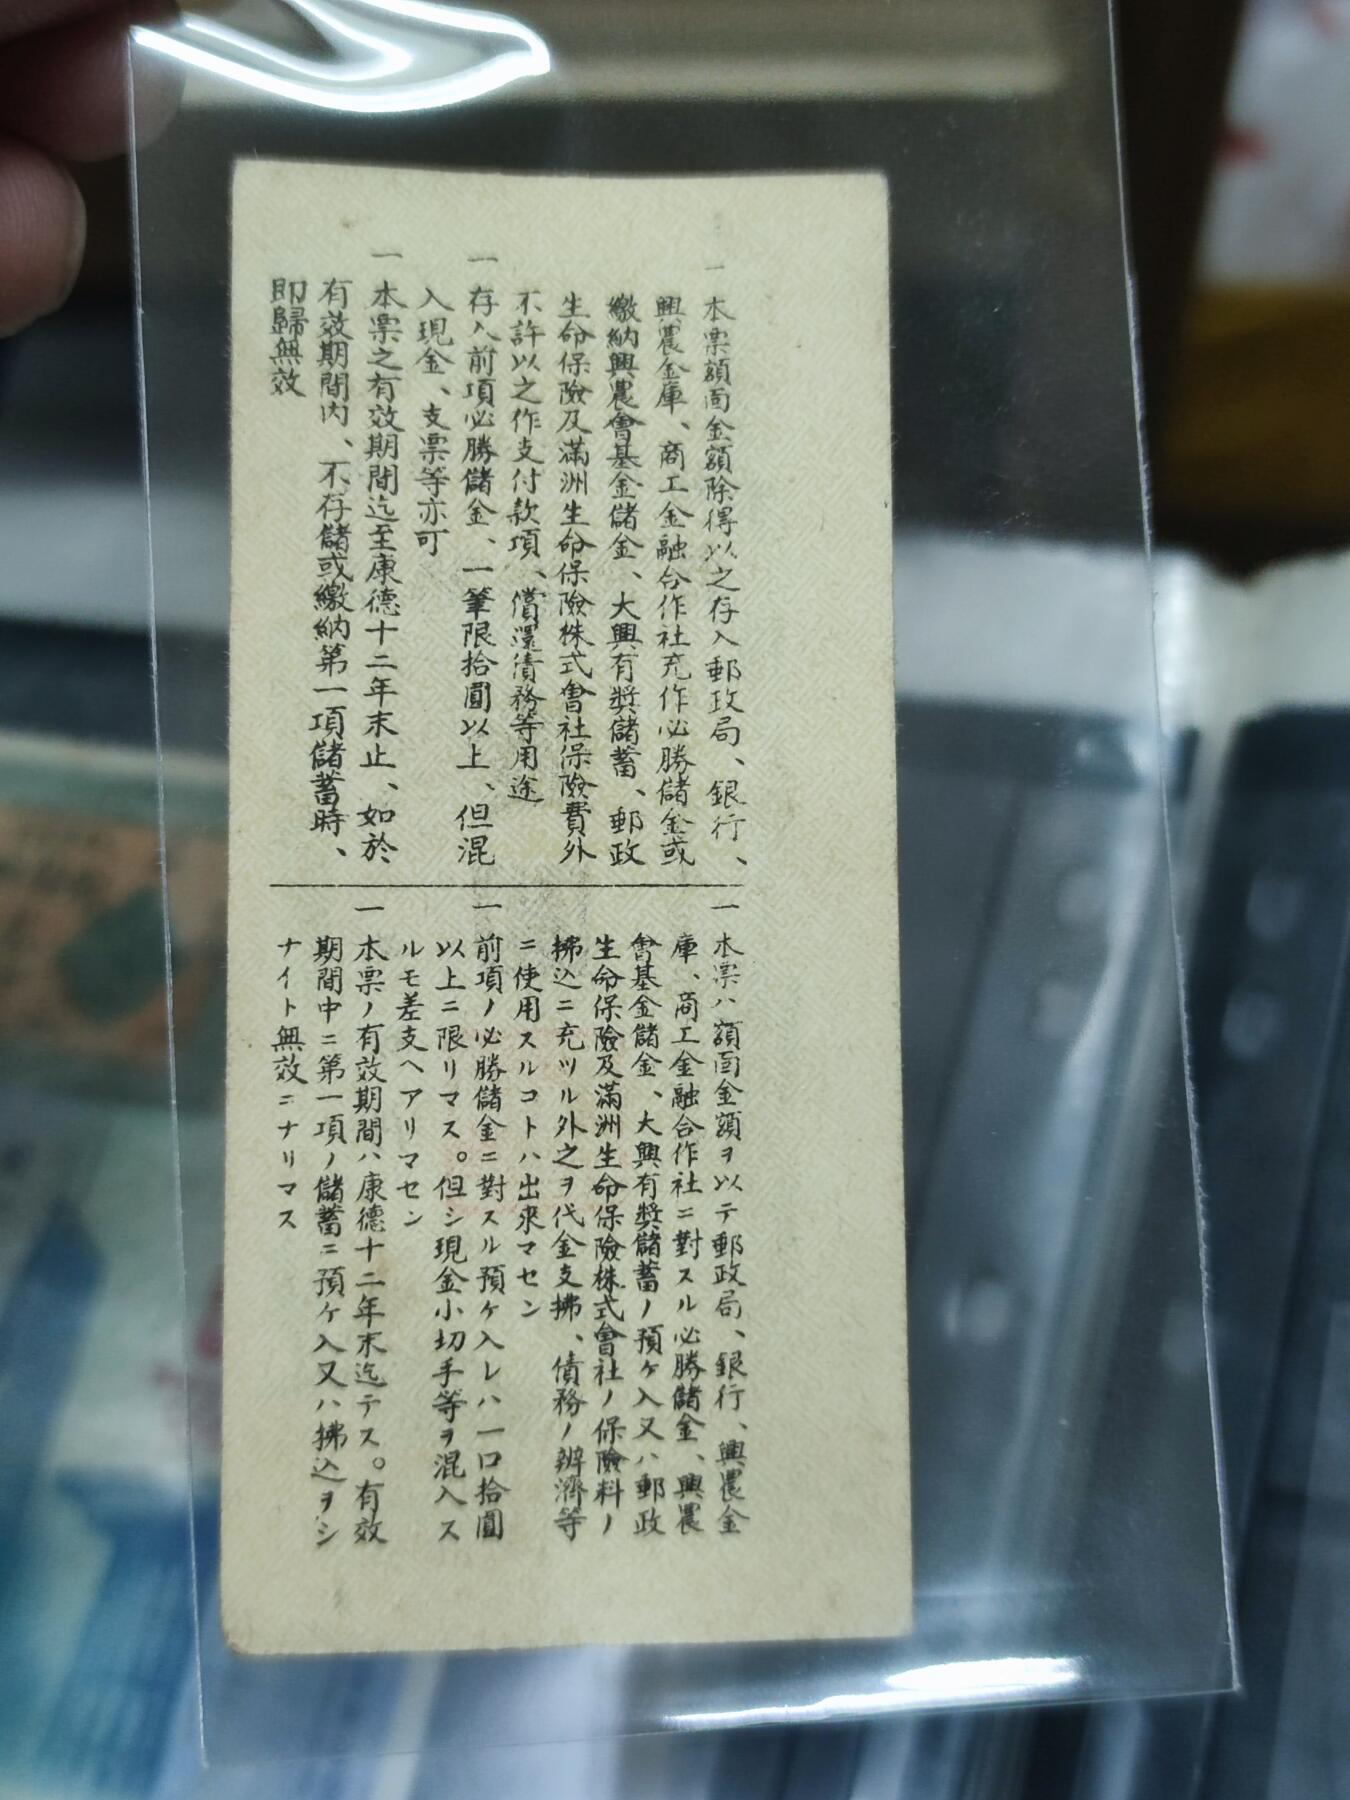 一本票額面金額除得以之存入郵政局、銀行、
興農金庫、商工金融合作社充作必勝儲金或
繳納興農會基金儲金、大興有奬儲蓄、郵政
生命保險及滿洲生命保險株式會社保險費外
不許以之作支付款項、償還債務等用途
一存入前項必勝儲金、一筆限拾圓以上、但混
入現金、支票等亦可
一本票之有效期間迄至康德十二年末止、如於
有效期間內、不存儲或繳納第一項儲蓄時、
即歸無效
一本票ハ額面金額ヲ以テ郵政局、銀行、興農金
庫、商工金融合作社ニ對スル必勝儲金、興農
會基金儲金、大興有奬儲蓄ノ預ケ入又ハ郵政
生命保險及滿洲生命保險株式會社ノ保險料ノ
拂込ニ充ツル外之ヲ代金支拂、債務ノ辨濟等
ニ使用スルコトハ出來マセン
一前項ノ必勝儲金ニ對スル預ケ入レハ一口拾圓
以上ニ限リマス。但シ現金小切手等ヲ混入ス
ルモ差支ヘアリマセン
一本票ノ有效期間ハ康德十二年末迄テス。有效
期間中ニ第一項ノ儲蓄ニ預ケ入又ハ拂込ヲシ
ナイト無效ニナリマス